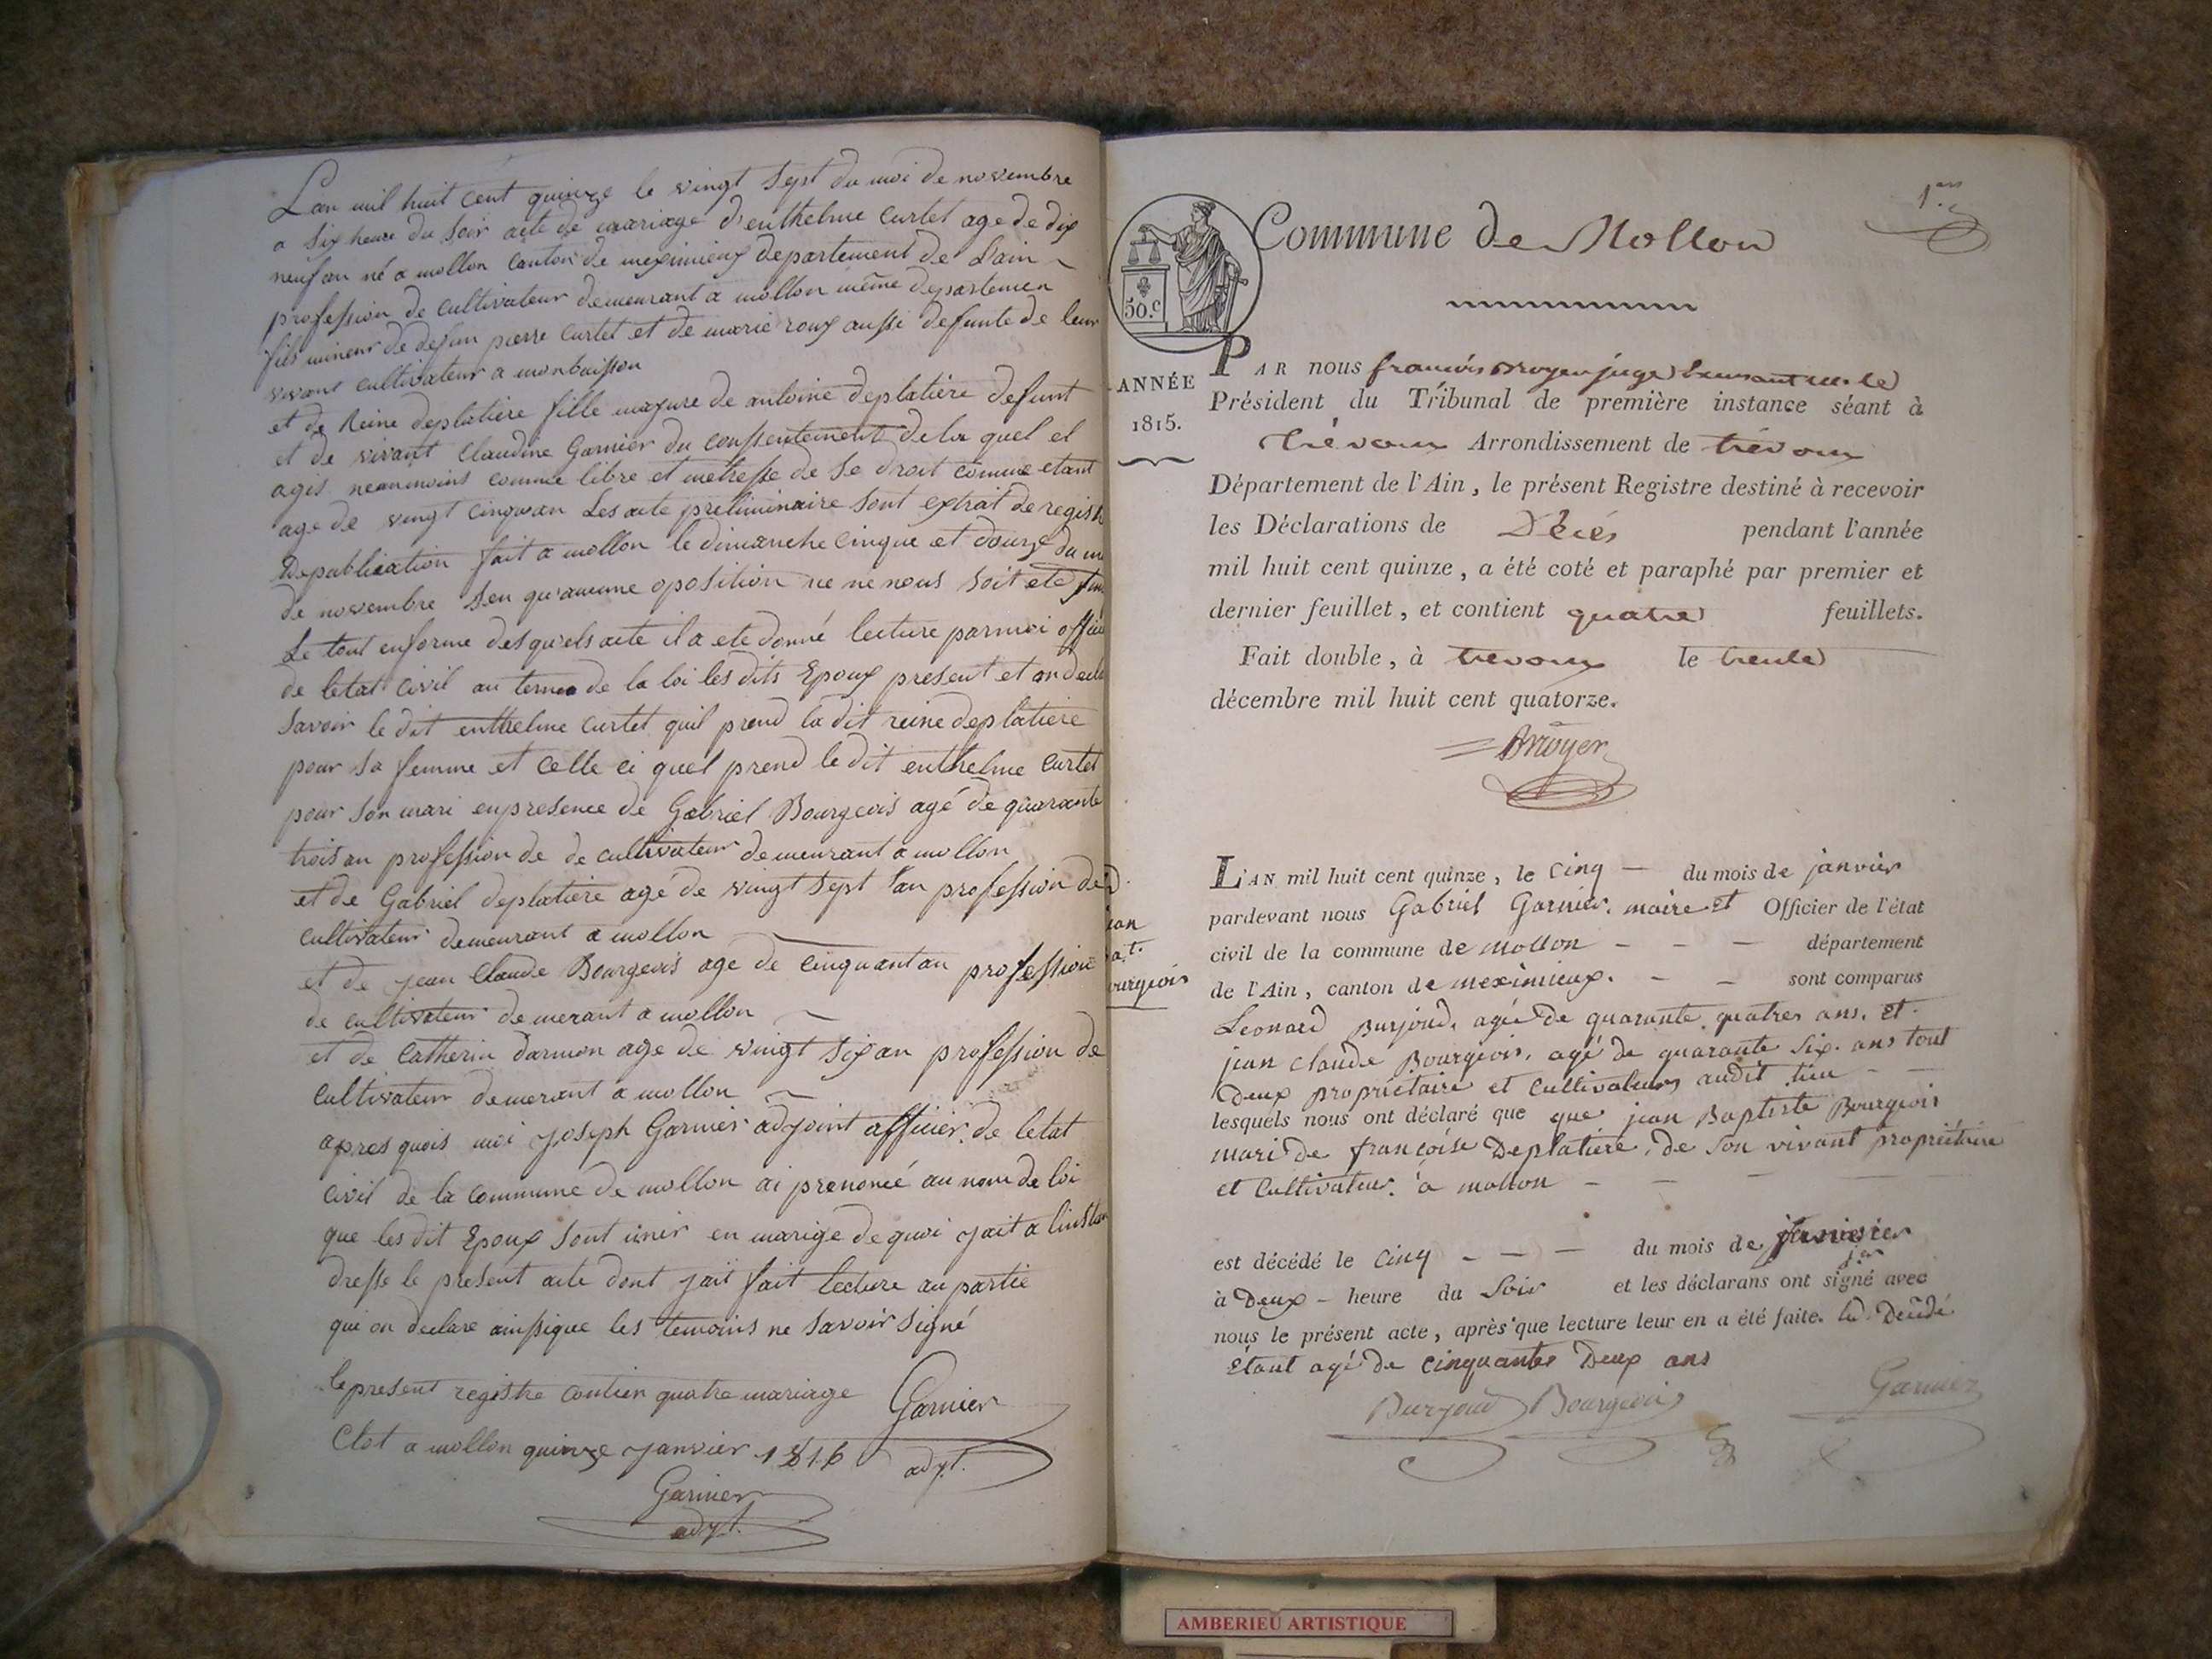 Lan mil huit cent quinze le vingt sept du moi de novembre
a six heure du soir acte de mariage d'enthelme curtet age de dix
neuf an né a mollon canton de meximieux departement de Lain
profession de cultivateur demeurant a mollon même departemen
fils mineur de defun pierre curtet et de marie roux aussi defunte de leur
vivant cultivateur a
et de Reine deplatière fille majure de antoine deplatière defunt
et de vivant Claudine Garnier du conssentement de la quel el
agis neanmoins comme libre et metresse de se droit comme etant
age de vingt cinq an Les acte preliminaire sont extrat de regist
De publication fait a mollon le dimanche cinque et douze du m
de novembre sen qu'aucune oposition ne ne nous soit ete
Le tout enforme desquels acte il a ete donné lecture par moi offici
de letat civil au terme de la loi les dits Epoux present et on decla
savoir le dit enthelme curtet quil prend la dit reine deplatiere
pour sa femme et celle ci quel prend le dit enthelme curtet
pour son mari en presence de Gabriel Bourgeois agé de quarante
trois an profession de de cultivateur demeurant a mollon
et de Gabriel deplatière agé de vingt sept an profession de
cultivateur demeurant a mollon
et de jean Claude Bourgeois age de cinquant an profession
de cultivateur demerant a mollon
et de Catherin darmon age de vingt six an profession de
cultivateur demerant a mollon
apres quois moi joseph Garnier adjoint officier de letat
civil de la commune de mollon ai prenoncé au nom de loi
que les dit Epoux sont unir en marige de quoi jait a linstan
dresse le present acte dont jait fait lecture au partie
qui on declare ainssique les temoins ne savoir signé
le present registre contien quatre mariage
Clot a mollon quinze janvier 1816
Garnier
adjt.
Garnier
adjt.
1.er
Commune de Mollon
50.c
ANNÉE
1815.
PAR nous francois
Président du Tribunal de première instance séant à
trévoux Arrondissement de trévoux
Département de l'Ain, le présent Registre destiné à recevoir
les Déclarations de Décès pendant l'année
mil huit cent quinze, a été coté et paraphé par premier et
dernier feuillet, et contient quatre feuillets.
Fait double, à trevoux le trente
décembre mil huit cent quatorze.
L'AN mil huit cent quinze, le cinq du mois de janvier
pardevant nous Gabriel Garnier, maire et Officier de l'état
civil de la commune de mollon département
de l'Ain, canton de meximieux. sont comparus
Leonard Burjoud, agée de quarante quatres ans, et
jean claude Bourgeois, agé de quarante six ans tout
Deux propriétaire et cultivateurs audit lieu
lesquels nous ont déclaré que que jean Baptiste Bourgeois
mari de françoise Deplatière, de son vivant propriétaire
et Cultivateur à mollon
est décédé le cinq du mois de janvier
à Deux heure du soir et les déclarans ont signé avec
nous le présent acte, après que lecture leur en a été faite. led. Décédé
étant agé de cinquante Deux ans
Burjoud Bourgeois Garnier
ourgeois
AMBERIEU ARTISTIQUE